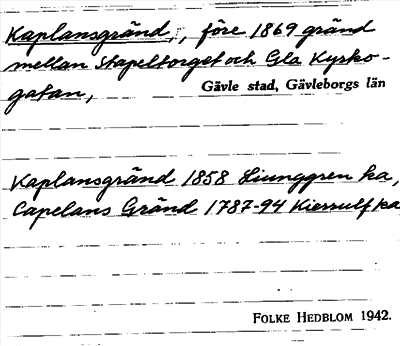 Kaplansgränd, före 1869 gränd
mellan Stapeltorget och Gla Kyrko-
gatan,
Gävle stad, Gävleborgs län
Kaplansgränd 1858 Ljunggren ka,
Capelans Gränd 1787-94 Kierrulf ka
FOLKE HEDBLOM 1942.